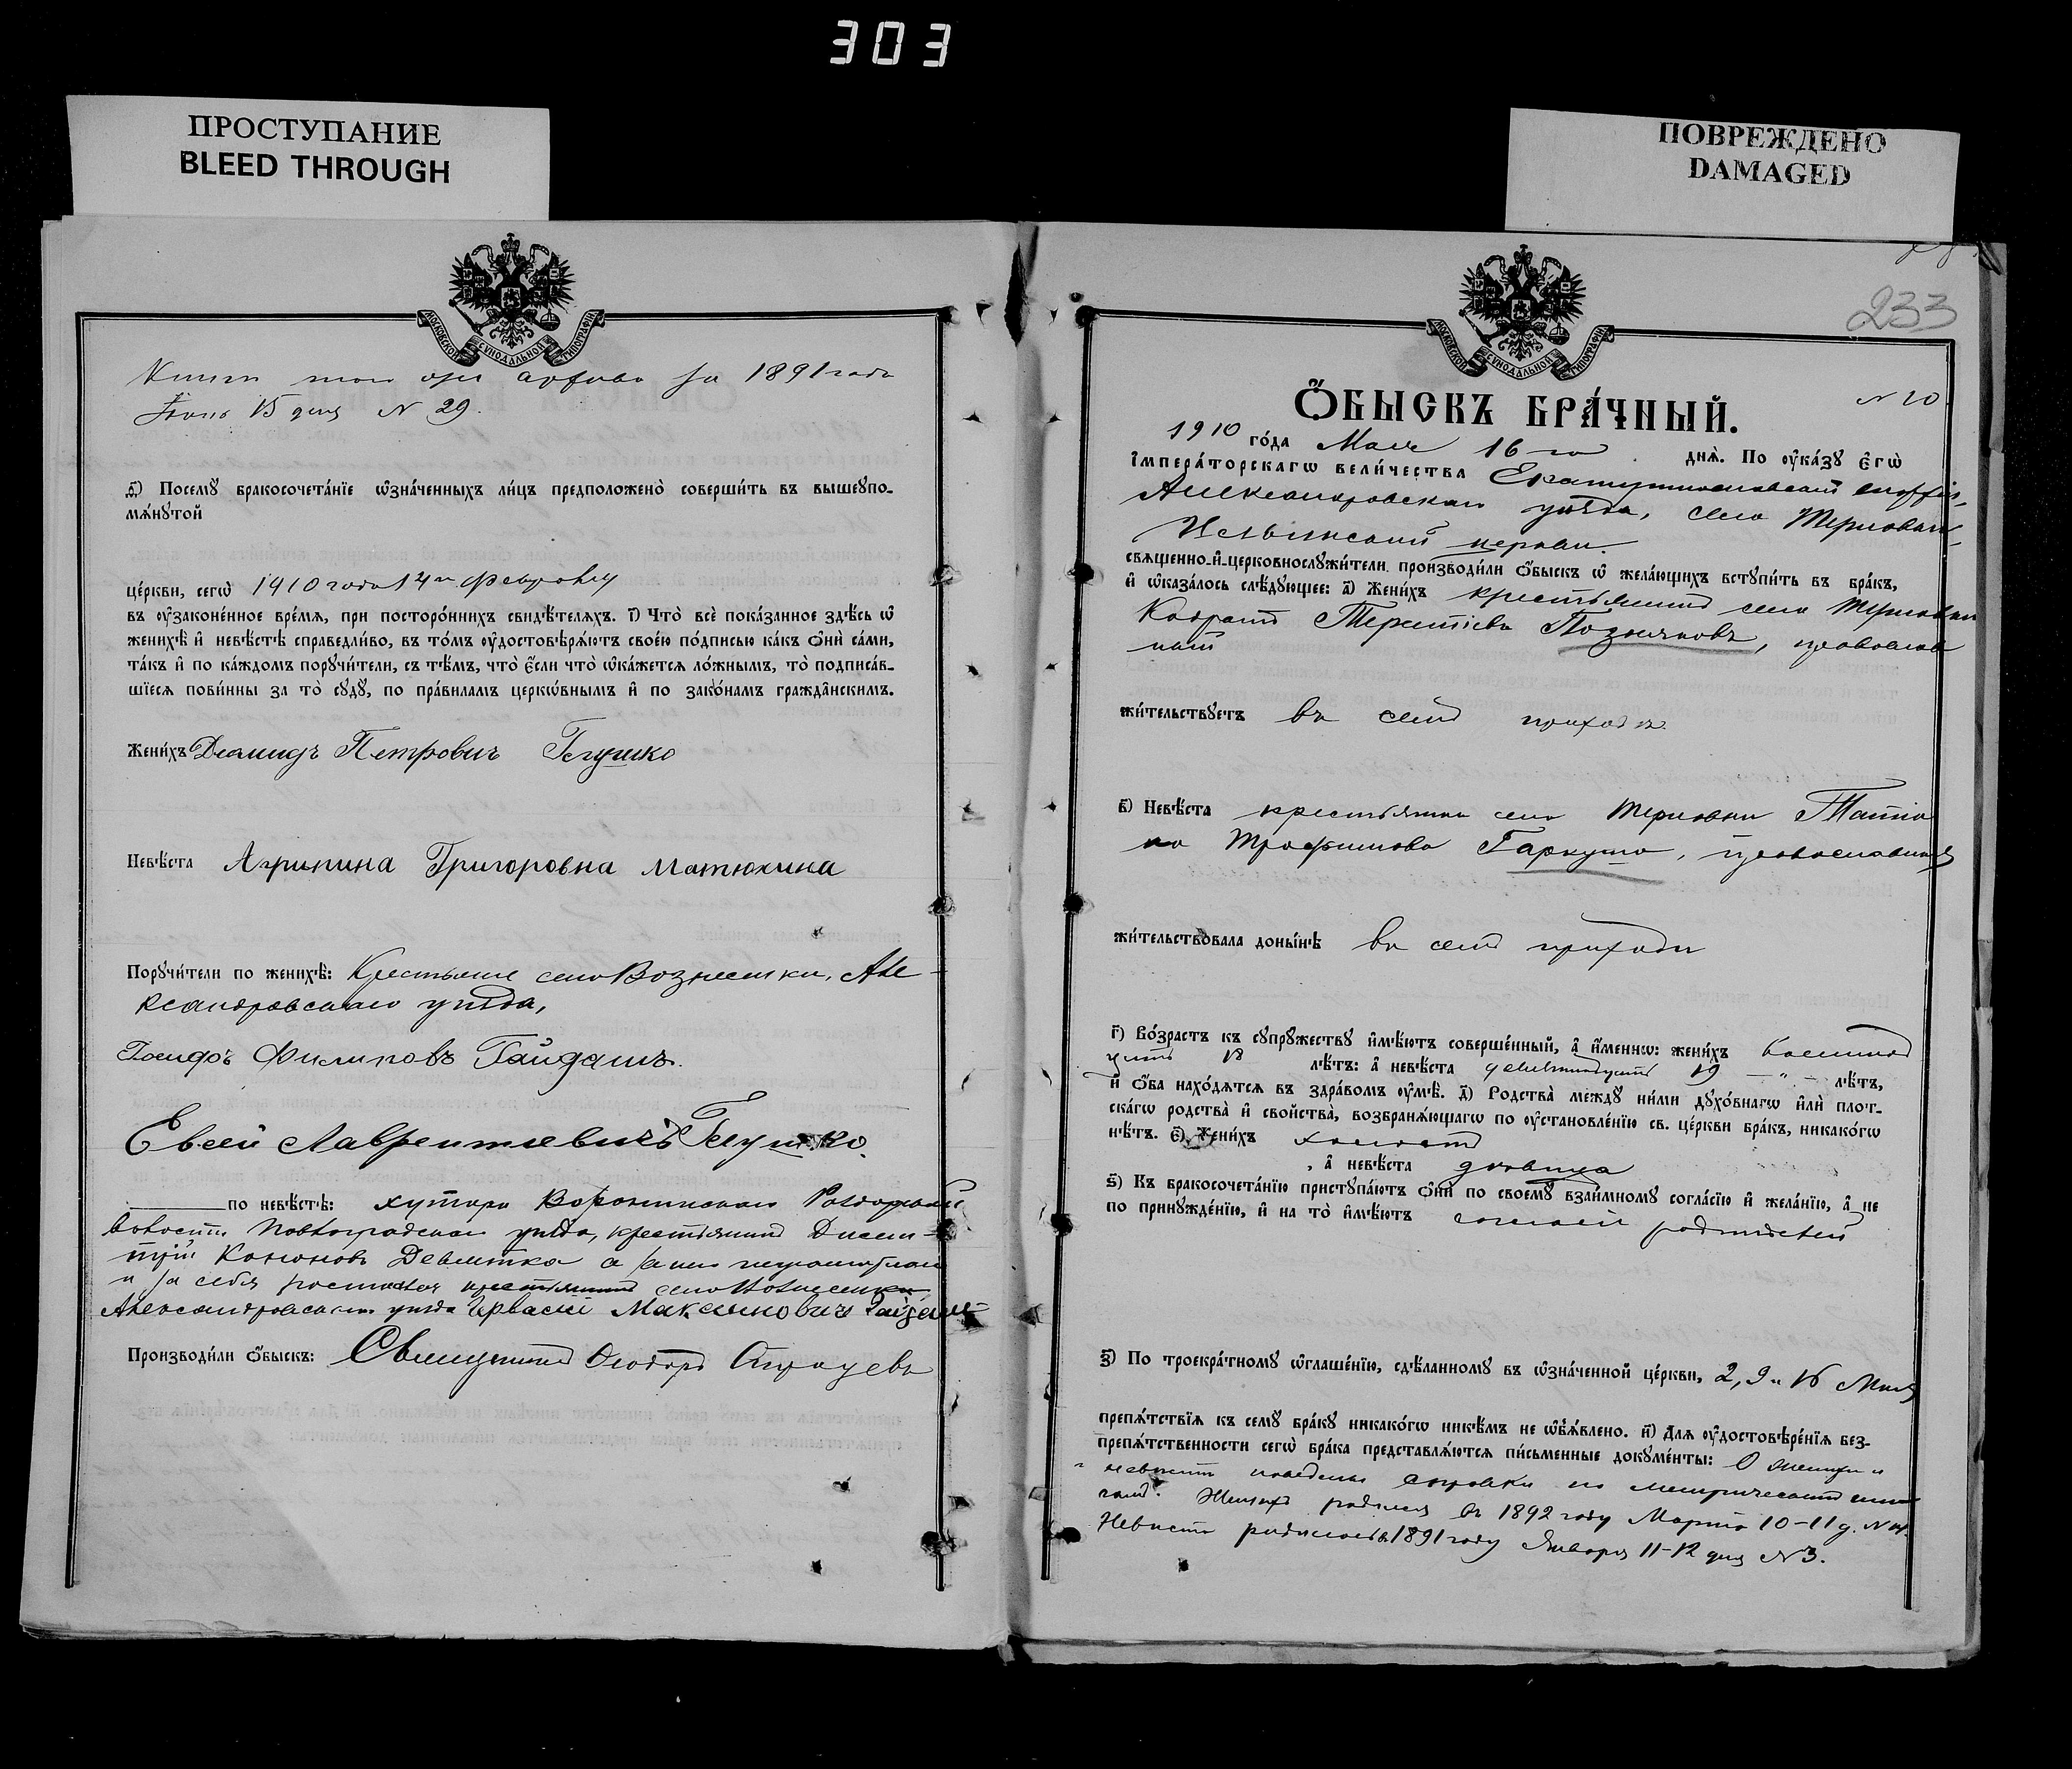 303
ПРОСТУПАНИЕ
BLEED THROUGH
ПОВРЕЖДЕНО
DAMAGED
МОСКОВСКОЙ СѴНОДАЛЬНОЙ ТИПОГРАФІИ
за 1891 года
15 дня N 29.
Посемꙋ бракосочета́нїе ѡ҆зна́ченныхъ ли́цъ предположено̀ соверши́ть въ вышеꙋпо-
мѧ́нꙋтой
це́ркви, сегѡ̀ 1910 года 14го февраля
въ ᲂу҆зако́ненное вре́мѧ, при посторо́ннихъ свидѣ́телѧхъ. і҃) Что̀ всѐ пока́занное здѣ́сь ѡ҆
женихѣ̀ и҆ невѣ́стѣ справедли́во, въ то́мъ ᲂу҆достовѣрѧ́ютъ свое́ю по́дписью ка́къ ѻ҆нѝ са́ми,
та́къ и҆ по ка́ждомъ порꙋчи́тели, съ тѣ́мъ, что̀ є҆́сли что̀ ѡ҆ка́жетсѧ ло́жнымъ, то̀ подписа́в-
шїесѧ пови́нны за то̀ сꙋдꙋ̀, по пра́виламъ церко́внымъ и҆ по зако́намъ гражда́нскимъ.
Жени́хъ Демидъ Петровичъ Глушко
Невѣ́ста Агрипина Григоровна Матюхина
Порꙋчи́тели по женихѣ̀: Крестьяне села Вознесенки, Але-
ксандровскаго уѣзда,
Филиповъ Гайдашъ.
Евсей Лаврентиевичъ Глушко.
по невѣ́стѣ: хутора
волости Павлоградскаго уѣзда, крестьянинъ
Девятка а за него неграмотнаго
и за себя крестьянинъ села Вознесенки
Александровскаго уѣзда Максимовичъ Гайдашъ
Производи́ли ѻ҆́быскъ: Священникъ Ѳеодоръ
МОСКОВСКОЙ СѴНОДАЛЬНОЙ ТИПОГРАФІИ
233
N 20
Ѻ҆́БЫСКЪ БРА́ЧНЫЙ.
1910 го́да Мая 16го днѧ̀. По ᲂу҆ка́зꙋ Є҆гѡ̀
И҆мпера́торскагѡ вели́чества Екатеринославской епархіи,
Александровскаго уѣзда, села Терновки
Ильинской церкви.
свѧщенно-и҆-церковнослꙋжи́тели производи́ли ѻ҆́быскъ ѡ҆ жела́ющихъ встꙋпи́ть въ бра́къ,
и҆ ѡ҆каза́лось слѣ́дꙋющее: а҃) Жени́хъ крестьянинъ села Терновки
Кодратъ Терентіевъ Позняковъ, православ
ный
жи́тельствꙋетъ въ семъ приходѣ.
в҃) Невѣ́ста крестьянка села Терновки Татіа
на Трофимова Гаркуша, православная
жи́тельствовала доны́нѣ въ семъ приходѣ
г҃) Во́зрастъ къ сꙋпрꙋ́жествꙋ и҆мѣ́ютъ соверше́нный, а҆ и҆́меннѡ: жени́хъ восемнад
цать 18 лѣ́тъ: а҆ невѣ́ста девятнадцать 19 лѣ́тъ,
и҆ ѻ҆́ба нахо́дѧтсѧ въ здра́вомъ ᲂу҆мѣ̀. д҃) Родства̀ мє́ждꙋ ни́ми дꙋхо́внагѡ и҆лѝ пло́т-
скагѡ родства̀ и҆ сво́йства̀, возбранѧ́ющагѡ по ᲂу҆становле́нїю св. це́ркви бра́къ, никако́гѡ
нѣ́тъ. є҃) Жени́хъ холостъ
, а҆ невѣ́ста дѣвица
ѕ҃) Къ бракосочета́нїю пристꙋпа́ютъ ѻ҆нѝ по своемꙋ̀ взаи́мномꙋ согла́сїю и҆ жела́нїю, а҆ не
по принꙋжде́нїю, и҆ на то̀ и҆мѣ́ютъ согласіе родителей
з҃) По троекра́тномꙋ ѡ҆глаше́нїю, сдѣ́ланномꙋ въ ѡ҆зна́ченной це́ркви, 2, 9 и 16 Мая
препѧ́тствїѧ къ семꙋ̀ бра́кꙋ никако́гѡ никѣ́мъ не ѡ҆б̾ѧ́влено. и҃) Длѧ ᲂу҆достовѣре́нїѧ без-
препѧ́тственности сегѡ̀ бра́ка представлѧ́ютсѧ пи́сьменные докꙋме́нты: О женихѣ и
невѣстѣ наведены справки по метрическимъ кни
гамъ. Женихъ родился въ 1892 году Марта 10-11 д. N
Невѣста родилась въ 1891 году Января 11-12 дня N 3.